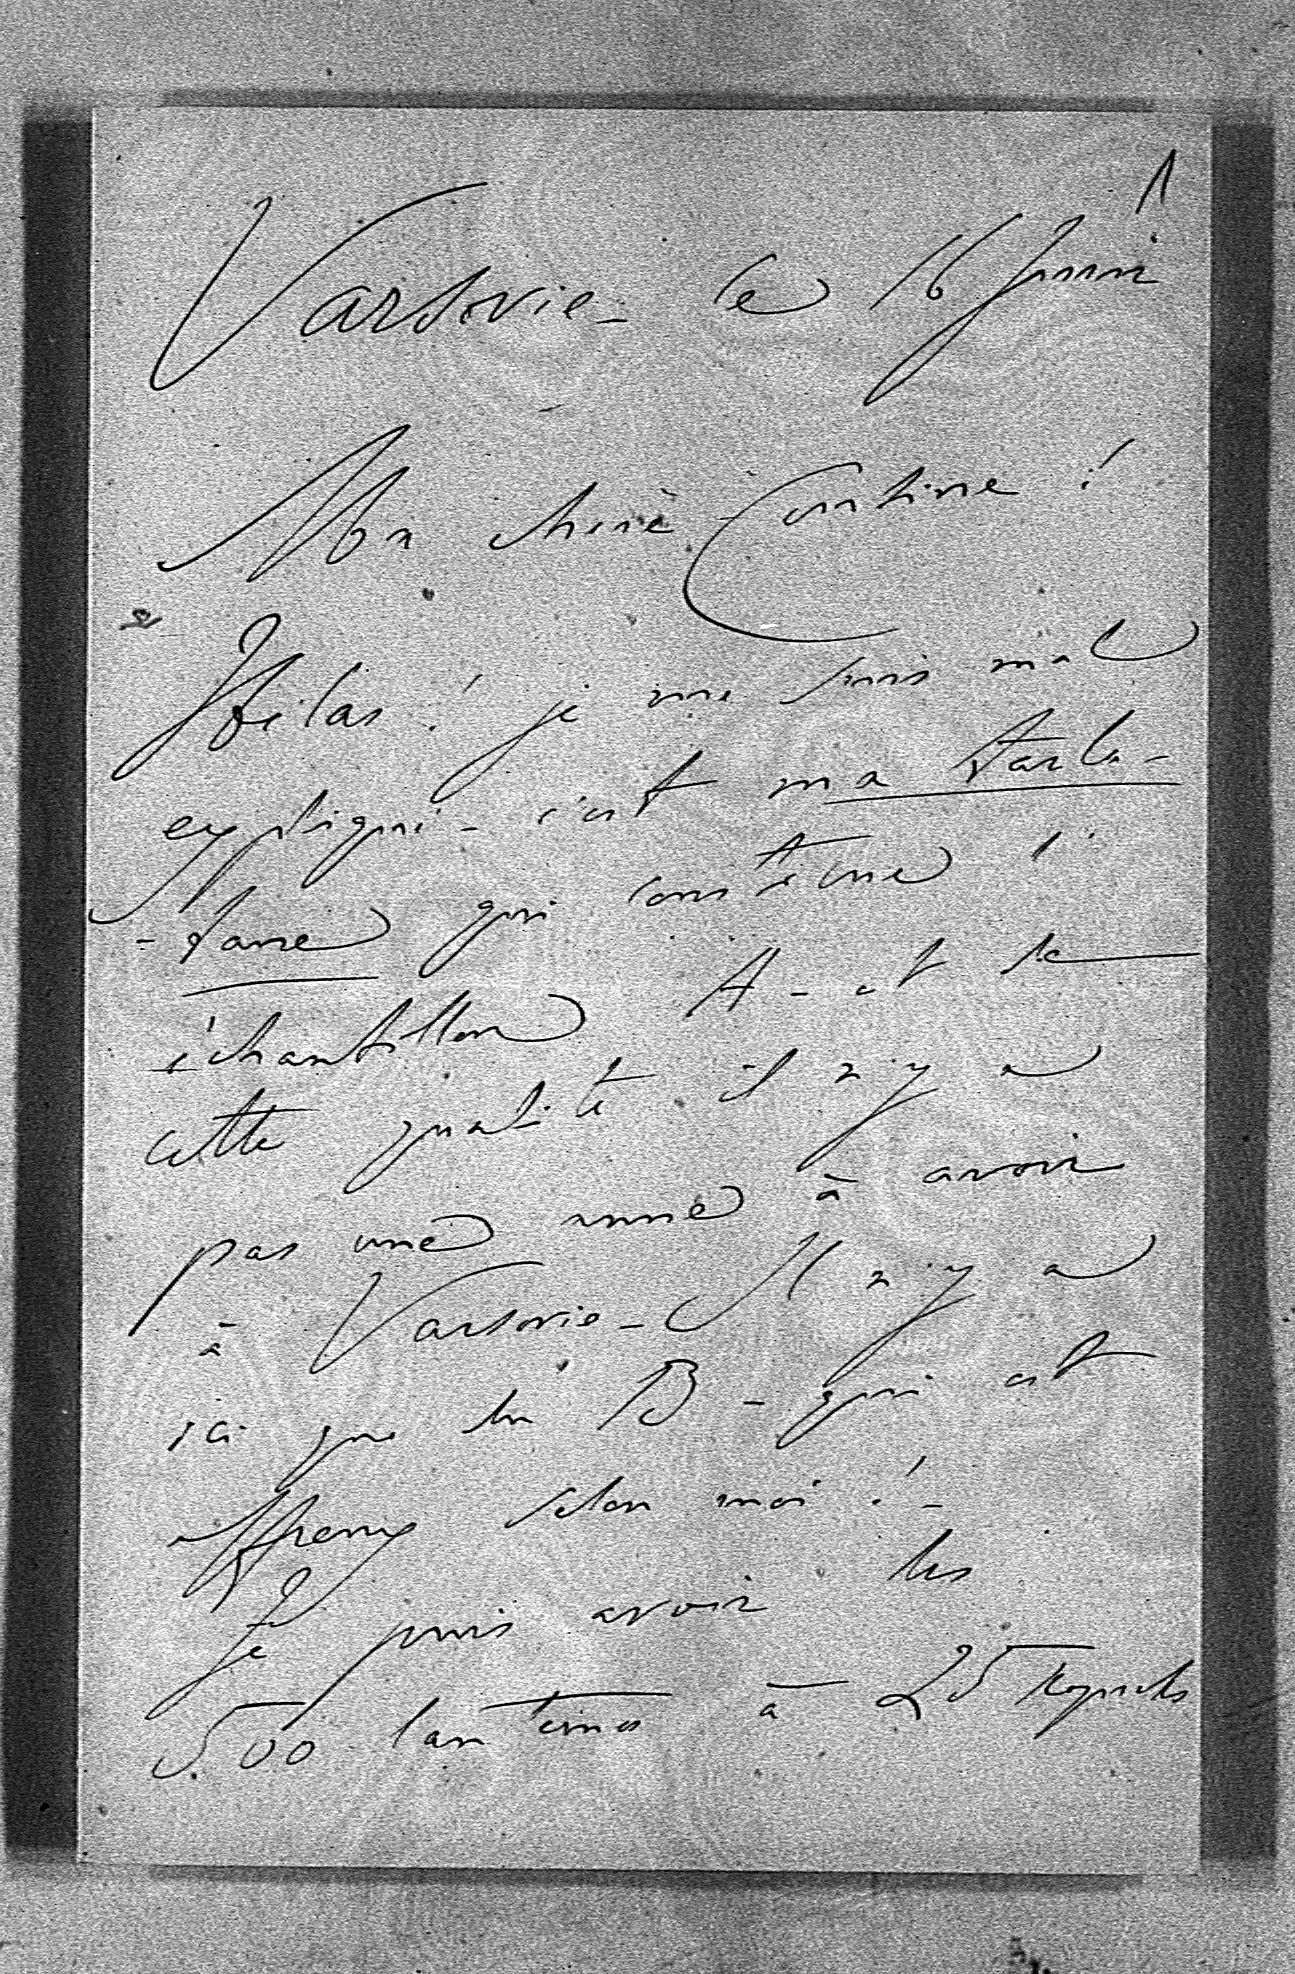 1
Varsovie – le 16 Juin
Mon chère Cousine !
Hélas ! je me suis mal
expliqué – c'est ma tarla-
-tane qui constitue l'
échantillon A – et de
cette qualité il n'y a
pas une aune à avoir
à Varsovie – Il n'y a
ici que du B – qui est
affreux selon moi ! –
Je puis avoir les
500 lanternes à 25 Kopecks